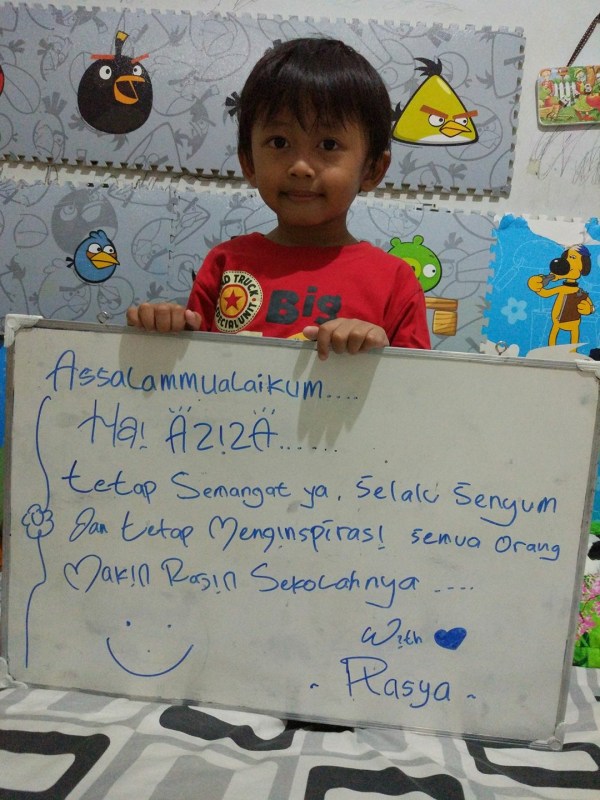 Assalammualaikum....
Ha! Aziza......
tetap Semangat ya, Selalu Senyum
Dan tetap Menginspirasi semua orang
Makin Rajin Sekolahnya ....
With
- Rasya -
D TRUCK
SPECIAL UNIT
Big